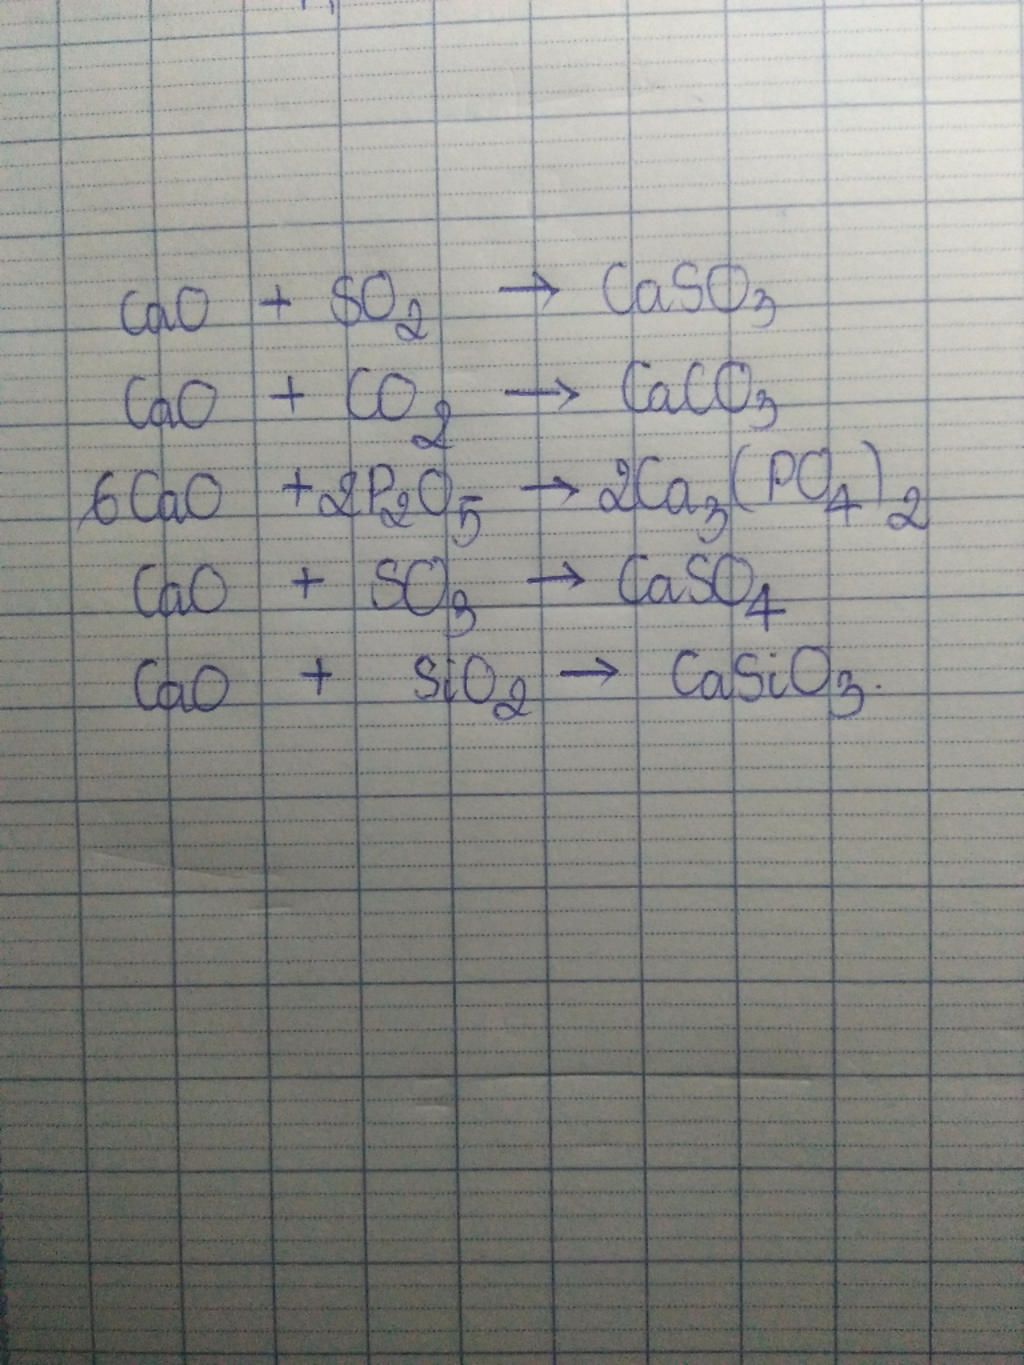 CaO + SO₂ → CaSO₃
CaO + CO₂ → CaCO₃
6CaO + 2P₂O₅ → 2Ca₃(PO₄)₂
CaO + SO₃ → CaSO₄
CaO + SiO₂ → CaSiO₃.